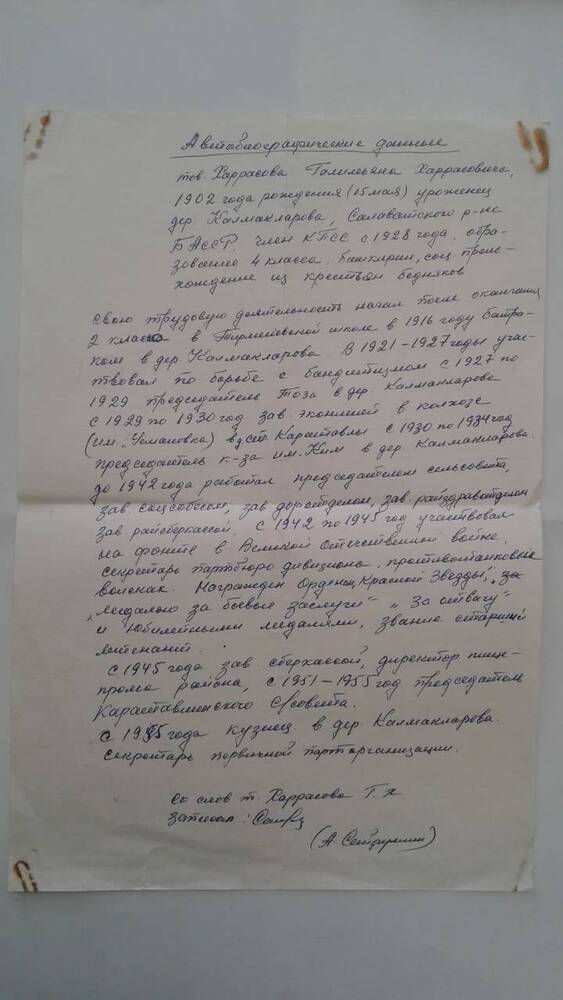 Автобиографические данные
тов. Харрасова Галимьяна Харрасовича,
1902 года рождения (15 мая) уроженец
дер. Калмакларова, Салаватского р-на
БАССР. член КПСС с 1928 года. обра-
зование 4 класса. башкирин, соц. проис-
хождение из крестьян бедняков.
свою трудовую деятельность начал после окончания
2 класса в школе в 1916 году батра-
ком в дер. Калмакларова. В 1921-1927 годы учас-
твовал по борьбе с бандитизмом с 1927 по
1929 председатель Тоза в дер. Калмакларово
с 1929 по 1930 год зав. экономией в колхозе
(им. ) в д. ст. Каратавлы с 1930 по 1934 год
председатель к-за им. Ким в дер. Калмакларова.
до 1942 года работал председателем сельсовета,
зав. собесом, зав. дор. отделом, зав. райздравотделом
зав. райсберкассой. с 1942 по 1945 год участвовал
на фронте в Великой Отечественной войне.
секретарь партбюро дивизиона. противотанковые
войсках. Награжден Орденом „Красной Звезды", за
„медалью за боевые заслуги" „За отвагу"
и юбилейными медалями, звание старший
лейтенант.
с 1945 года зав. сберкассой, директор пище-
прома района, с 1951-1955 год председатель
Каратавлинского с/совета.
с 1955 года кузнец в дер. Калмакларова.
секретарь первичной парторганизации.
со слов т. Харрасова Г. Х
записал:
(А. )